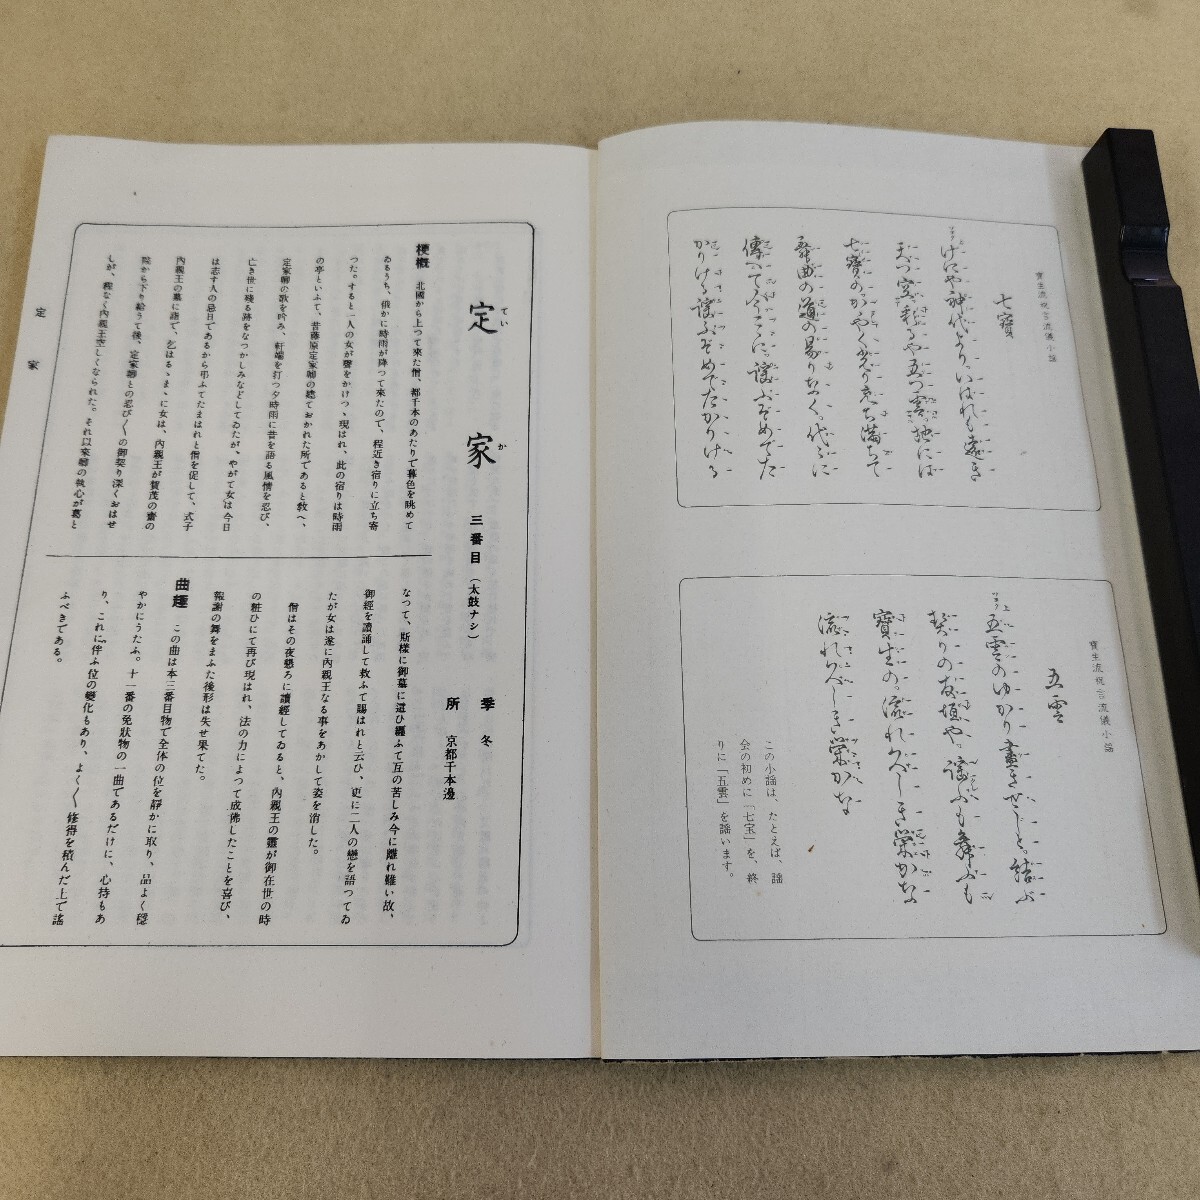 寶生流祝言流儀小謡
七寶
上
げにや神代より。いはれも遠き
天つ空なりや五つ雲。地には
七寶のかゞやく光り充ち満ちて
舞曲の道の
傳へて今こゝに。謡ふぞめでた
かりける謡ふぞめでたかりける
寶生流祝言流儀小謡
五雲
上
五雲のゆかり盡きせじと。結ぶ
契りの友垣や。謡ふも舞ふも
寶生の。流れ久しき榮かな
流れ久しき榮かな
この小謡は、たとえば、謡
会の初めに「七宝」を、終
りに「五雲」を謡います。
定家
ていか
三番目(太鼓ナシ)
季 冬
所 京都千本邊
梗概 北國から上つて來た僧、都千本のあたりで暮色を眺めて
ゐるうち、俄かに時雨が降つて來たので、程近き宿りに立ち寄
つた。すると一人の女が聲をかけつゝ現はれ、此の宿りは時雨
の亭といふて、昔藤原定家卿の建ておかれた所であると敎へ、
定家卿の歌を吟み、軒端を打つ夕時雨に昔を語る風情を忍び、
亡き世に殘る跡をなつかしみなどしてゐたが、やがて女は今日
は志す人の忌日であるから弔ふてたまはれと僧を促して、式子
內親王の墓に詣で、乞はるゝまゝに女は、內親王が賀茂の齋の
院から下り給うて後、定家卿との忍び〱の御契り深くおはせ
しが、程なく內親王空しくなられた。それ以來卿の執心が葛と
なつて、斯樣に御墓に這ひ纒ふて互の苦しみ今に離れ難い故、
御經を讀誦して救ふて賜はれと云ひ、更に二人の戀を語つてゐ
たが女は遂に內親王なる事をあかして姿を消した。
僧はその夜懇ろに讀經してゐると、內親王の靈が御在世の時
の粧ひにて再び現はれ、法の力によつて成佛したことを喜び、
報謝の舞をまふた後形は失せ果てた。
曲趣 この曲は本三番目物で全体の位を靜かに取り、品よく穩
やかにうたふ。十一番の免狀物の一曲であるだけに、心持もあ
り、これに伴ふ位の變化もあり、よく〱修得を積んだ上で謠
ふべきである。
定家